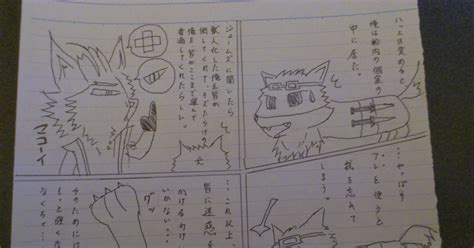 ハッと目が覚めると
俺は船内の個室の
中に居た。
ジェームズに聞いたら
獣人化した俺を皆が
倒してくれて、キズだらけの
俺を皆がここまで運んで
看病してくれたらしい。
マコーイ
…やっぱり
アレを使うと
我を忘れて
しまう。
…これ以上
皆に迷惑を
かけるわけには
いかない…!
グッ
そのためには
もっと強くな
なくちゃ…